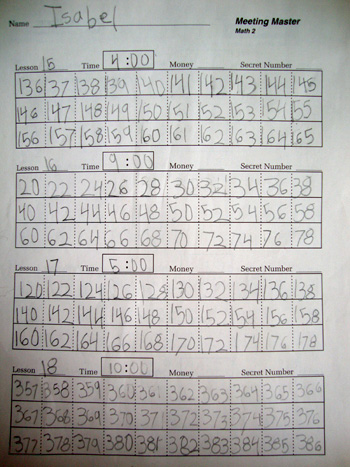 Name Isabel
Meeting Master
Math 2
Lesson 15 Time 4:00 Money Secret Number
136 137 138 139 140 141 142 143 144 145
146 147 148 149 150 151 152 153 154 155
156 157 158 159 160 161 162 163 164 165
Lesson 16 Time 9:00 Money Secret Number
20 22 24 26 28 30 32 34 36 38
40 42 44 46 48 50 52 54 56 58
60 62 64 66 68 70 72 74 76 78
Lesson 17 Time 5:00 Money Secret Number
120 122 124 126 128 130 132 134 136 138
140 142 144 146 148 150 152 154 156 158
160 162 164 166 168 170 172 174 176 178
Lesson 18 Time 10:00 Money Secret Number
357 358 359 360 361 362 363 364 365 366
367 368 369 370 371 372 373 374 375 376
377 378 379 380 381 382 383 384 385 386